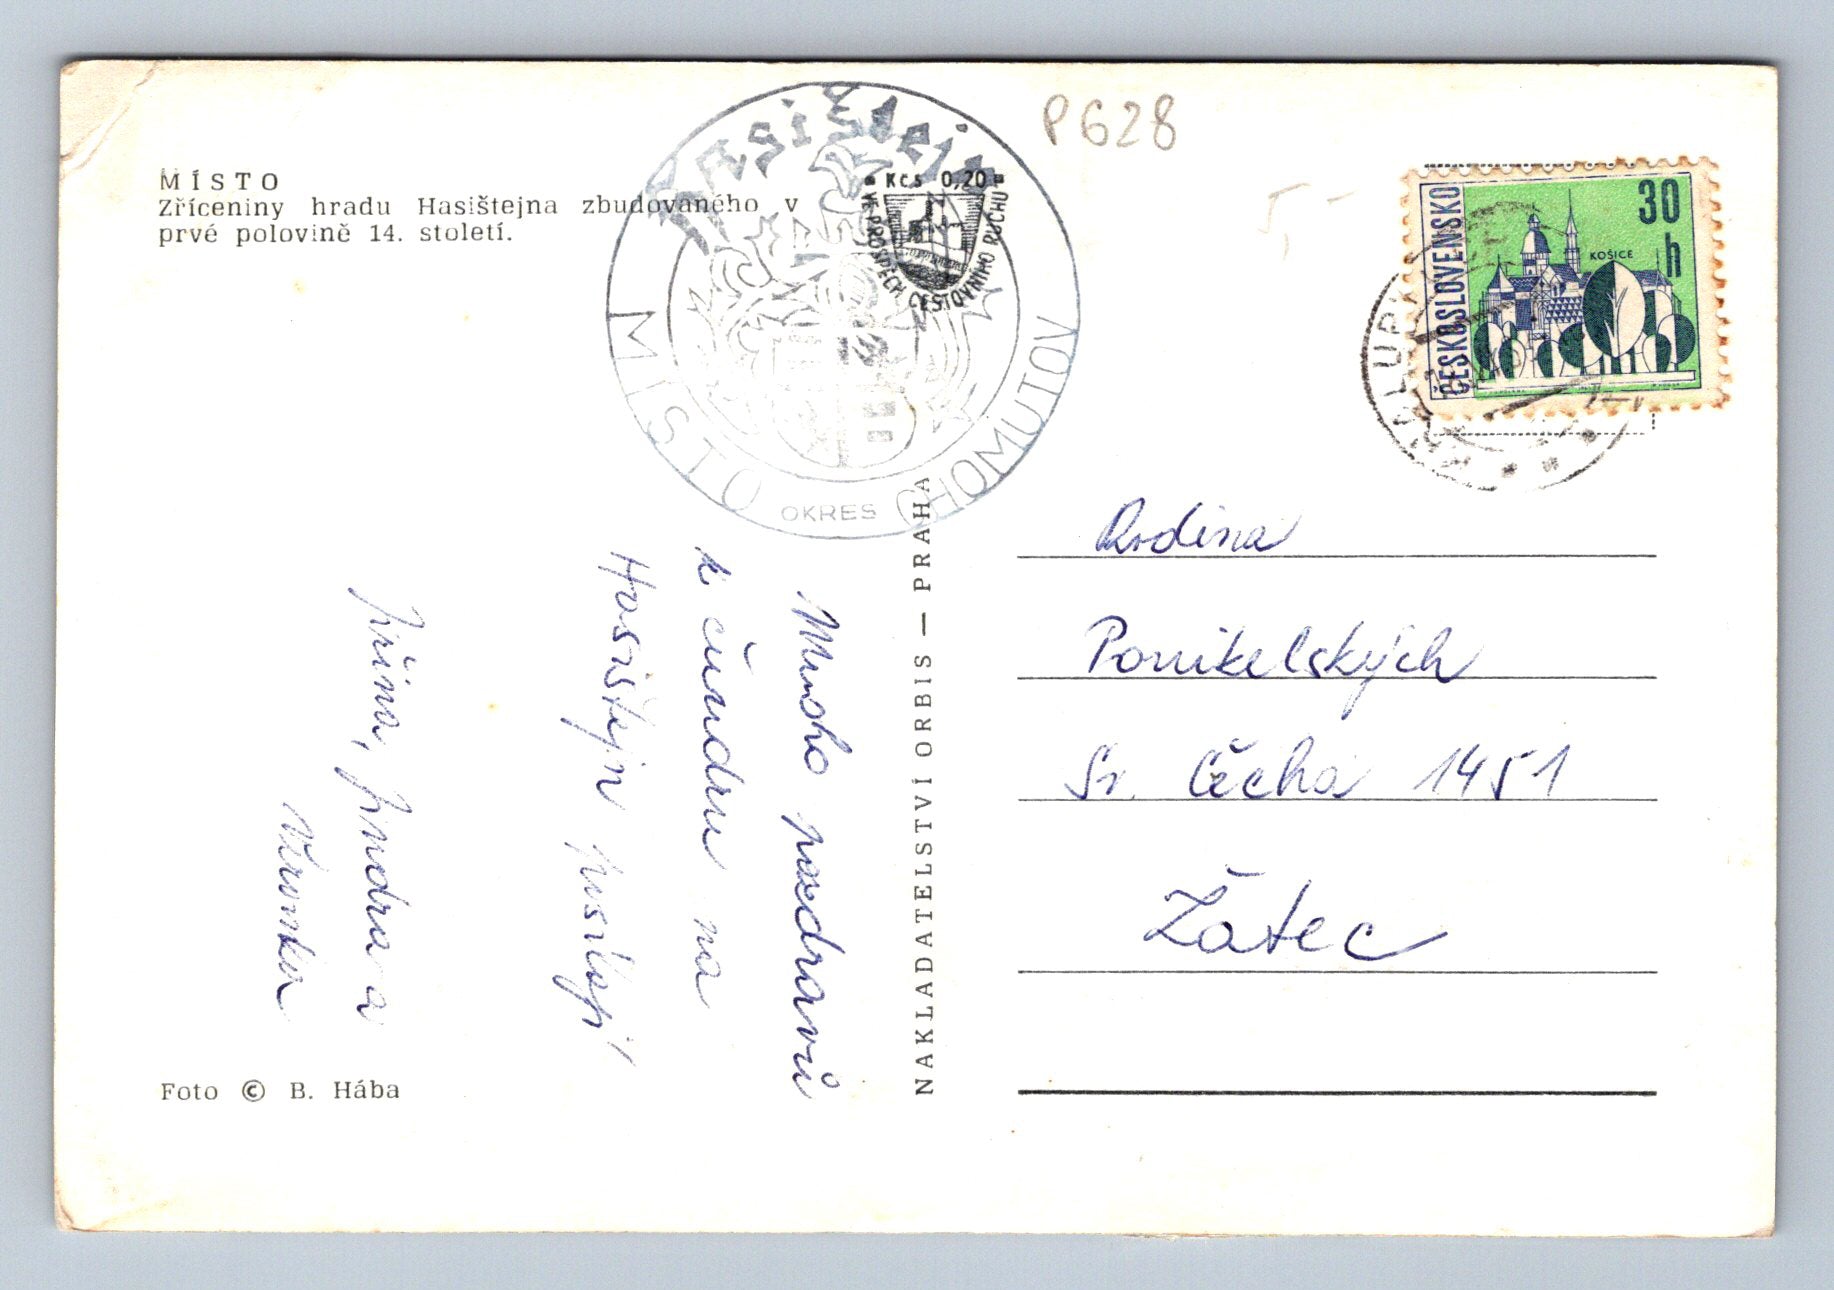 MÍSTO
Zříceniny hradu Hasištejna zbudovaného v
prvé polovině 14. století.
Hasištejn
MÍSTO OKRES CHOMUTOV
Kčs 0,20
VE PROSPĚCH CESTOVNÍHO RUCHU
P628
5,-
ČESKOSLOVENSKO
30
h
KOŠICE
Mnoho pozdravů
k čundru na
Hasištejn posílají
Jiřina, Jindra a
Věrunka
NAKLADATELSTVÍ ORBIS — PRAHA
Rodina
Ponikelských
Sv. Čecha 1451
Žatec
Foto © B. Hába